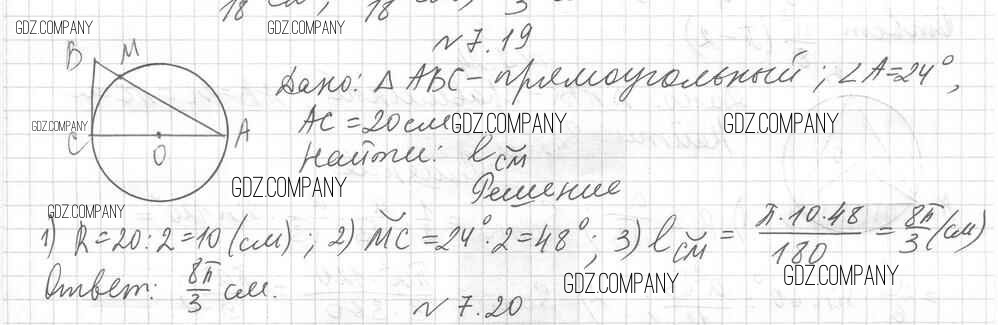 18 см, 18 см, 3
GDZ.COMPANY GDZ.COMPANY
№ 7.19
B M
Дано: △ ABC - прямоугольный; ∠A=24°,
GDZ.COMPANY AC = 20 см GDZ.COMPANY GDZ.COMPANY
C O A
Найти: ℓ с͝м
GDZ.COMPANY Решение
GDZ.COMPANY
1) R=20:2=10 (см); 2) M͝C = 24°·2=48°; 3) ℓ с͝м = π·10·48/180 = 8π/3 (см)
Ответ: 8π/3 см. GDZ.COMPANY GDZ.COMPANY
№ 7.20